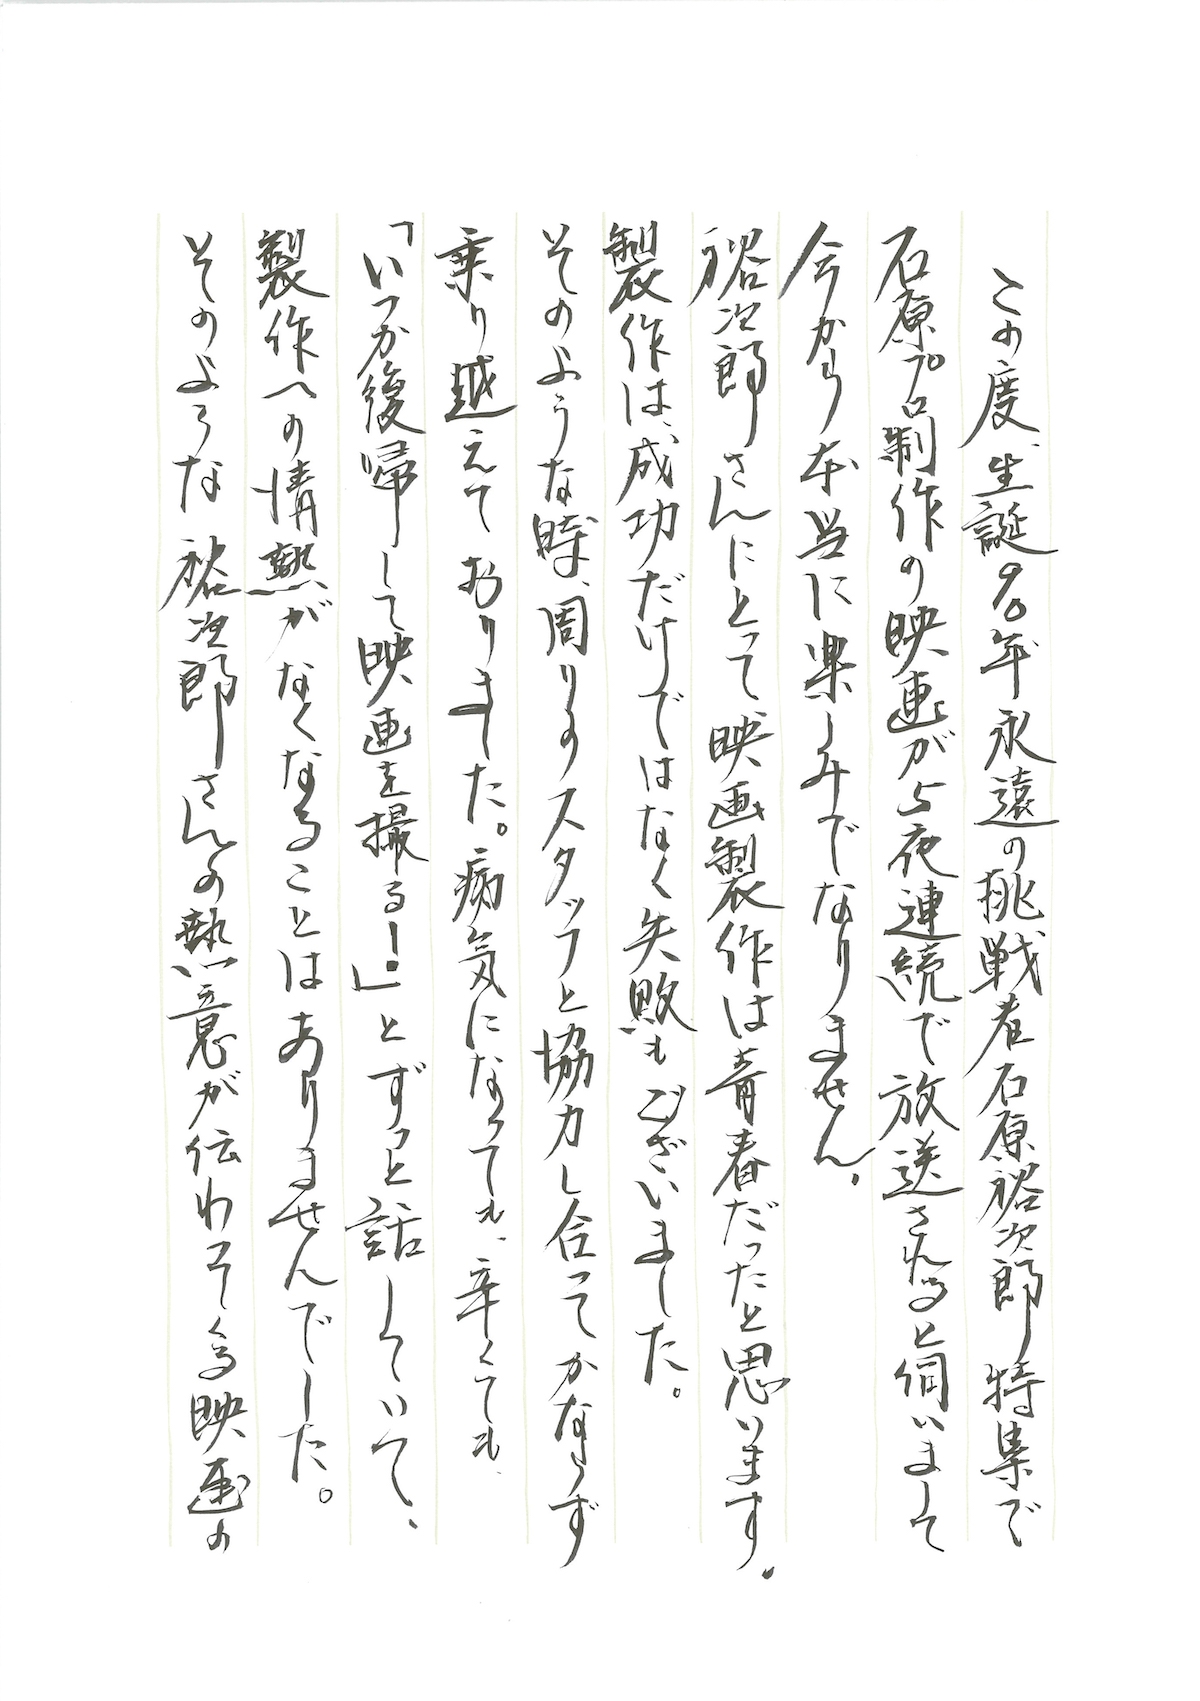 この度、生誕90年永遠の挑戦者石原裕次郎特集で
石原プロ制作の映画が5夜連続で放送されると伺いまして
今から本当に楽しみでなりません。
裕次郎さんにとって、映画製作は青春だったと思います。
製作は、成功だけではなく失敗もございました。
そのような時、周りのスタッフと協力し合ってかならず
乗り越えておりました。病気になっても、辛くても、
「いつか復帰して映画を撮る!」とずっと話していて、
製作への情熱がなくなることはありませんでした。
そのような裕次郎さんの熱意が伝わってくる映画の